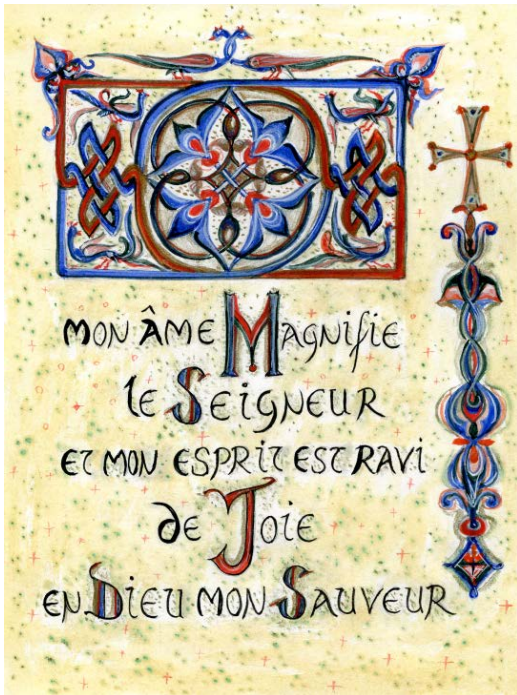 MON ÂME MAGNIFIE
le SEIGNEUR
ET MON ESPRIT EST RAVI
de JOIE
EN DIEU MON SAUVEUR